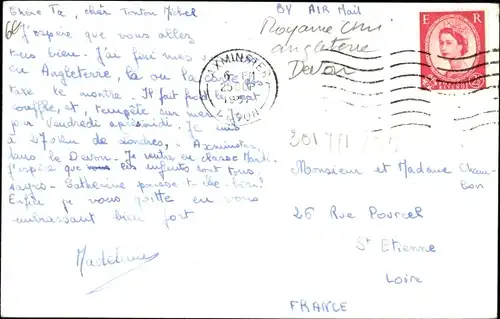 Chère Ta, chér Tonton Michel
J'espère que vous allez
très bien. J'ai fini mes
en Angleterre, là ou la
le montre. Il fait froid le vent
souffle, et, tempête sur mer
par Vendredi après midi. Je suis
à 270 km de Londres, - Axminster
dans le Devon. Je rentre en classe Mardi.
J'espère que vos enfants sont tous
sages. Catherine pousse t-elle bien?
Enfin je vous quitte en vous
embrassant bien fort
Madeleine
BY AIR Mail
Royaume Uni
angleterre
Devon
AXMINSTER
DEVON
E R
Monsieur et Madame Cham-
bon
26 Rue Pourcel
St Etienne
Loire
FRANCE